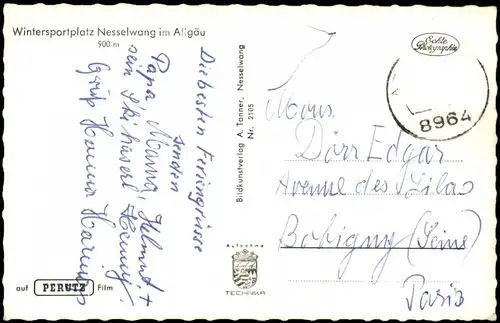 Wintersportplatz Nesselwang im Allgäu
900 m
Die besten Feriengrüsse
senden
Papa, Mama, Helmut +
sein Skihaserl
Gruß Hanna
auf PERUTZ Film
Bildkunstverlag A. Tanner, Nesselwang
Nr. 2105
Aufnahme
TECHNIKA
Echte
Photographie
8964
Mons.
Dörr Edgar
Avenue des Lilas
Bobigny (Seine)
Paris